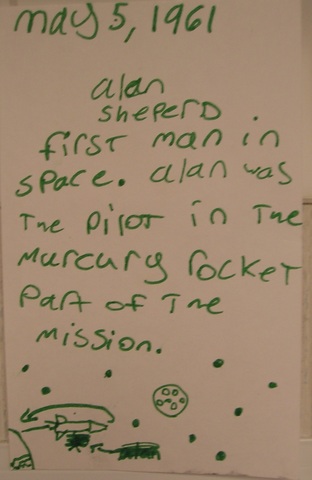 may 5, 1961
alan
sheperd
first man in
space. alan was
the pilot in the
mercury rocket
part of the
mission.
alan